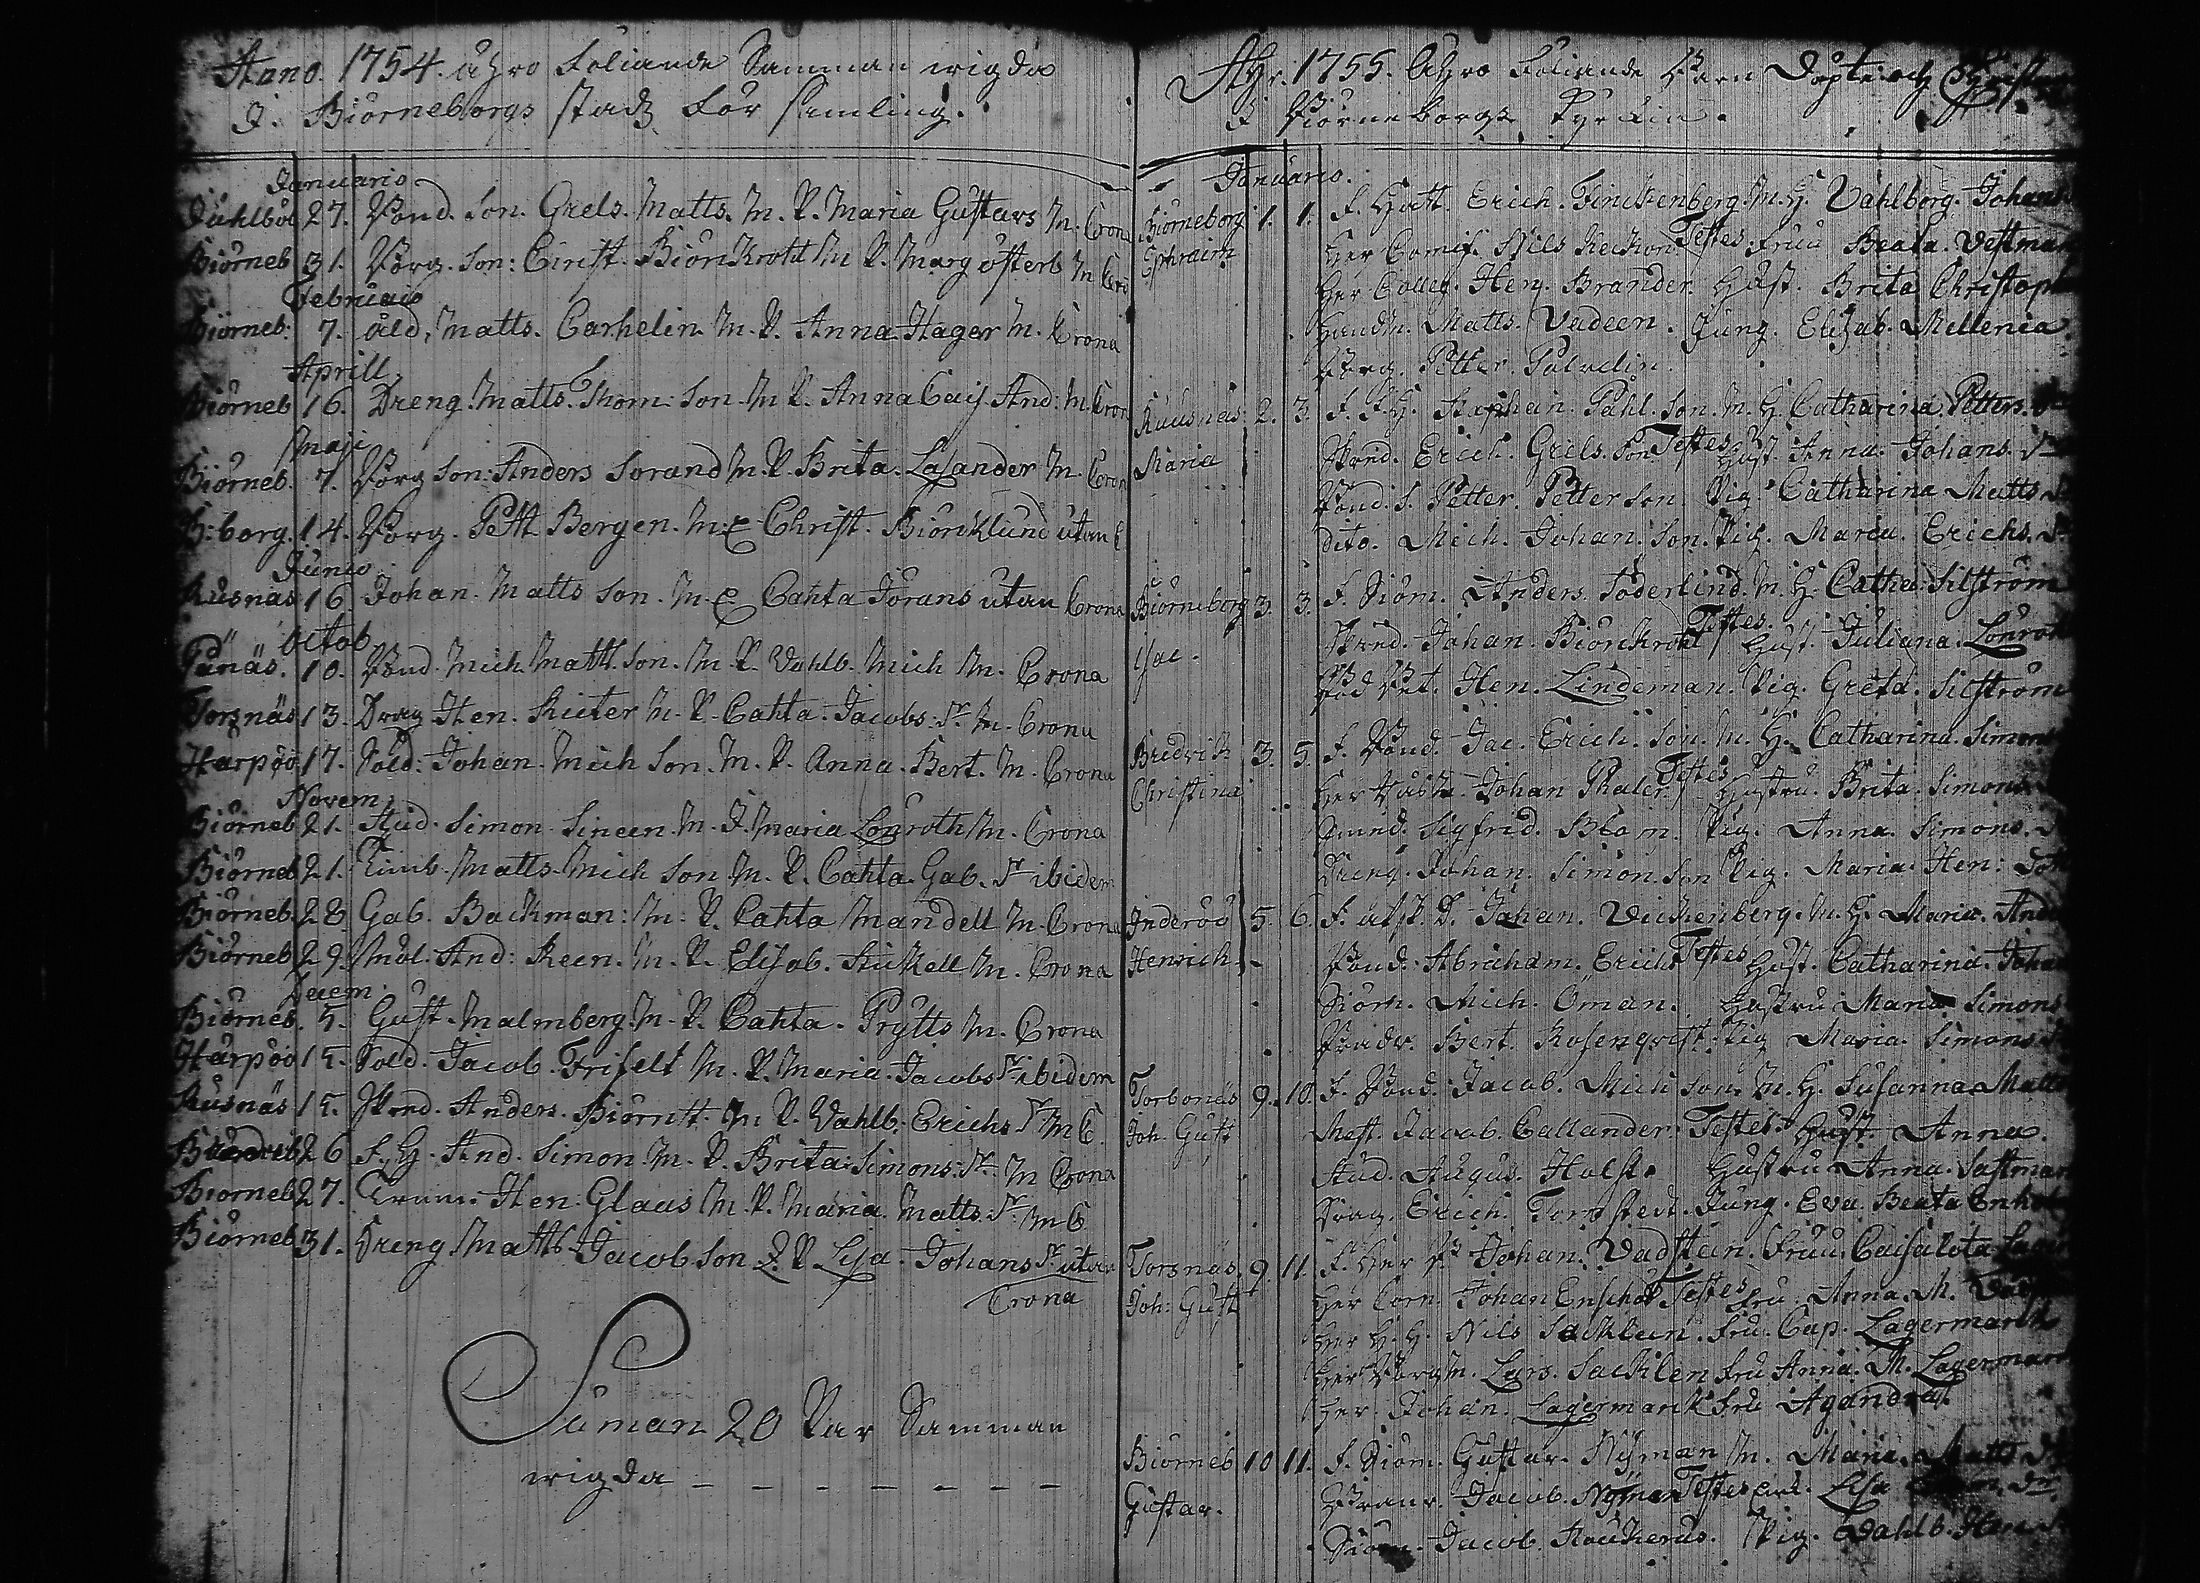 Anno. 1754. äro Föliande Samman wigda
I. Biörneborgs stadz För samling.
Januario
27. Bond. Son. Grels. Matts. M. P. Maria Gustavs M. Crona
Biörneb 31. Borg. Son: Christ. Biörkroht M P. Marg österb M Cro
Februario
Biörneb. 7. åld. Matts. Carhelin M. P. Anna Hager M. Crona
Aprill
Biörneb 16. Dreng. Matts. Thom. Son M P. Anna Caij. And: M. Cron
Maji
Biörneb. 7. Borg Son: Anders Sorand M. P. Brita. Lasander M. Cron
B: borg. 14. Borg. Pett Bergen. M. E Christ. Biörcklund utan C
Junio
Rusnäs 16 Johan. Matts Son. M. E Cahta Jörans utan Crona
Octob
10. Bond. Mich Matts. Son. M. P. Vahlb. Mich M. Crona
Torsnäs 13. Drag Hen. Rieter M. P. Cahta. Jacobs: Dr M. Crona
Harpöö 17. Sold. Johan. Mich Son. M. P. Anna. Bert. M. Crona
Novem
Biörneb 21. Stud. Simon Sineen M. J. Maria Lonroth M. Crona
Biörneb 21. Timb. Matts. Mich Son M. P. Cahta. Gab. Dr ibidem
Biörneb. 28 Gab. Backman: M: P. Cahta Mandell M. Crona
Biörneb 29. Mål. And: Reen. M. P. Elisab. Stickell M. Crona
Decem
Biörneb. 5. Gust. Malmberg. M. P. Cahta. Prytts M. Crona
Harpöö 15. Sold. Jacob. Frifelt M. P. Maria. Jacobs Dr ibidem
Rusnäs 15. Anders. Biörntt M P. Vahlb. Erichs Dr M C.
26 F. H. And. Simon. M. P. Brita: Simons: Dr M Crona
Biörneb 27. Trum. Hen: Glaas M. P. Maria. Matts. Dr M C
Biörneb 31. Dreng Matts Jacob Son P. Lisa. Johans Dr utan
Crona
Suman 20 Par Samman
wigda
1755. äro Föliande Barn Döpte och
I Biörneborgs Kyrkia.
Januario.
Biörneborg 1. 1. F. Hatt. Erich. Finckenberg. M. H. Vahlborg. Johans
Ephraim Her Comiss. Nils Testes. Fruu Beata. Vestman
Her Colleg. Hen. Brander. Hust. Brita Christoph
Handm. Matts. Vadeen. Jung. Elisab. Mellenia.
Borg. Petter. Palvelin.
Ruusnäs. 2. 3. F. F. H. Staphan. Pahl. Son. M. H. Catharina. Petters. Dr
Maria Erich. Grels. Son. Testes Hust. Anna. Johans. Dr
Bond. S. Petter. Petter Son. Pig. Catharina Matts D
dito. Mich. Johan. Son. Pig. Maria. Erichs. Dr
Biörneborg 3. 3. F. Siöm. Anders. Söderlind. M. H. Catha. Silström
Isac. Johan. Biörckroht Testes. Hust. Juliana. Lönroth
Hen. Lindeman. Pig. Greta. Silström
3. 5. F. Bond. Jac. Erich. Son. M. H. Catharina. Simons
Christina Her Johan Thaler Testes Hustru. Brita. Simons
Sigfrid. Blom. Pig. Anna. Simons.
Dreng. Johan. Simon. Son Pig. Maria. Hen: Dott
Inderöö 5. 6. F. Johan. Vickenberg. M. H. Maria. And
Henrich Bond. Abraham. Erichs Testes Hust. Catharina. Johan
Siöm. Mich. Öman. Hustru Maria Simons
Bert. Rosenqvist. Pig Maria. Simons
Torbonäs 9. 10. F. Bond. Jacob. Mich Son. M. H. Susanna Matts
Joh. Gust Mest. Jacob. Callander. Testes. Hust. Anna.
Stud. Augus. Holst. Hustru Anna. Sastmar
Drag. Erich. Tornstedt. Jung. Eva. Beata Enhol
Torsnäs 9. 11. F. Her Johan. Vadstein. Fruu. Caisalota Lager
Joh: Gust Her Corn. Johan Testes Fru. Anna. M.
Her H. H. Nils Sacklein. Fru. Cap. Lagermarck
Her Borgm. Lars. Sacklen Fru Anna. M. Lagermarck
Her. Johan. Lagermarck Fru Agandra.
Biörneb 10 11. F. Siöm. Gustav. Nyman M. Maria. Matts D
Gustav. Jacob. Nyman Testes Lisa Dr
Siöm. Jacob. Pig. Vahlb. Hen